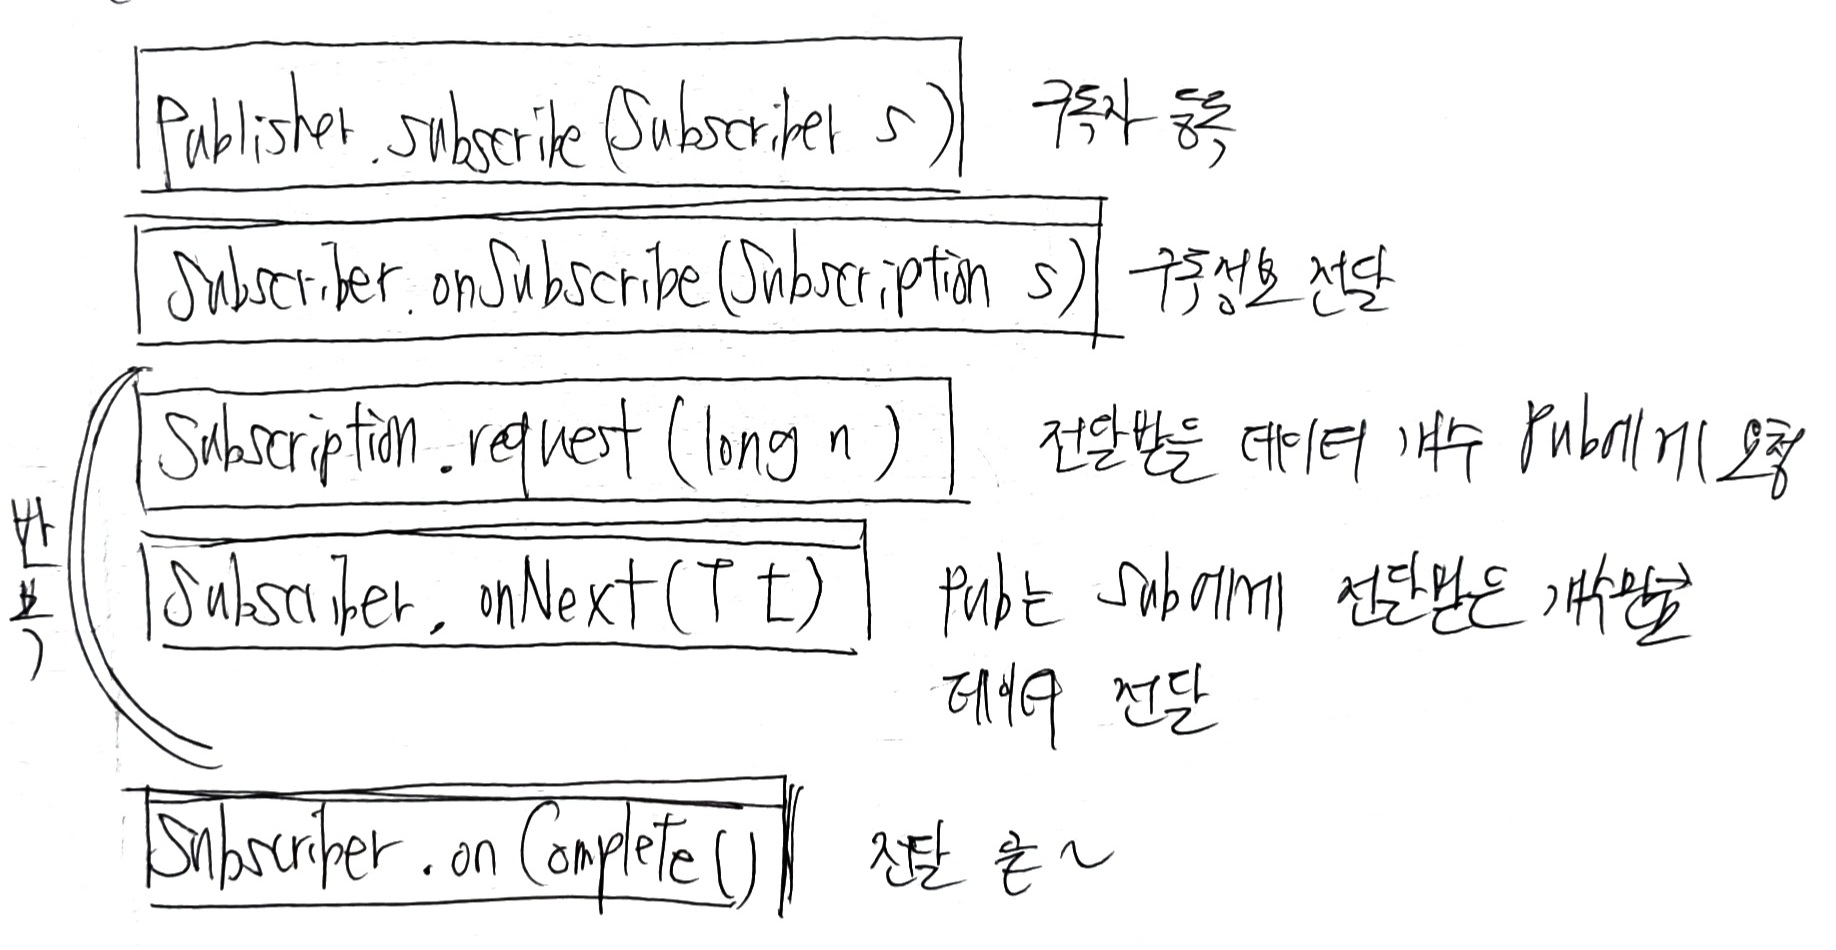 Publisher.subscribe(Subscriber s) 구독자 등록
Subscriber.onSubscribe(Subscription s) 구독정보 전달
Subscription.request(long n) 전달받을 데이터 개수 Pub에게 요청
반복
Subscriber.onNext(T t) Pub는 Sub에게 전달받은 개수만큼
데이터 전달
Subscriber.onComplete() 전달 끝~